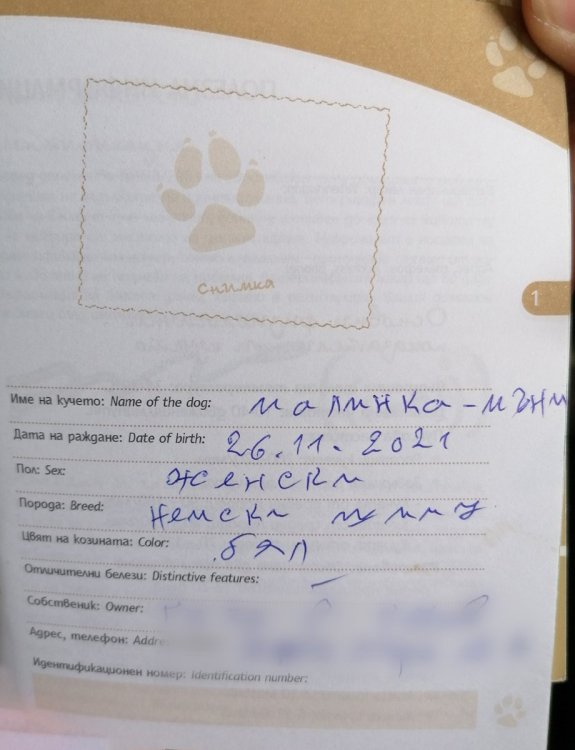 Снимка
1
Име на кучето: Name of the dog: малинка - мъни
Дата на раждане: Date of birth: 26.11.2021
Пол: Sex: женски
Порода: Breed: немски шпиц
Цвят на козината: Color: бял
Отличителни белези: Distinctive features: –
Собственик: Owner:
Адрес, телефон:
Идентификационен номер: Identification number: